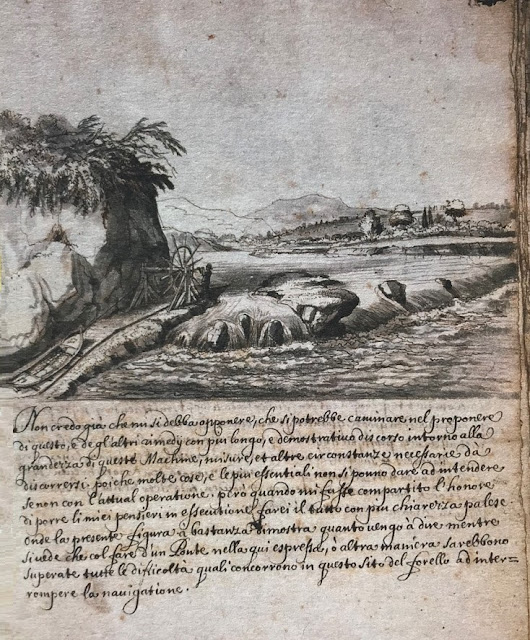 Non credo già che mi si debba opponere, che si potrebbe caminare nel proponere
di questo, e degl'altri rimedij con più longo, e demostrativo discorso intorno alla
grandezza di queste Machine, misure, et altre circonstanze necessarie da
discorrersi poiche molte cose, e le più essentiali non si ponno dare ad intendere
se non con l'attual operatione; però quando mi fosse compartito l'honore
di porre li miei pensieri in essecutione, farei il tutto con più chiarezza palese
onde la presente figura à bastanza dimostra quanto vengo à dire mentre
si vede che col fare d'un Ponte nella qui espressa, ò altra maniera sarebbono
superate tutte le difficoltà quali concorrono in questo sito del forello ad inter-
rompere la navigatione.